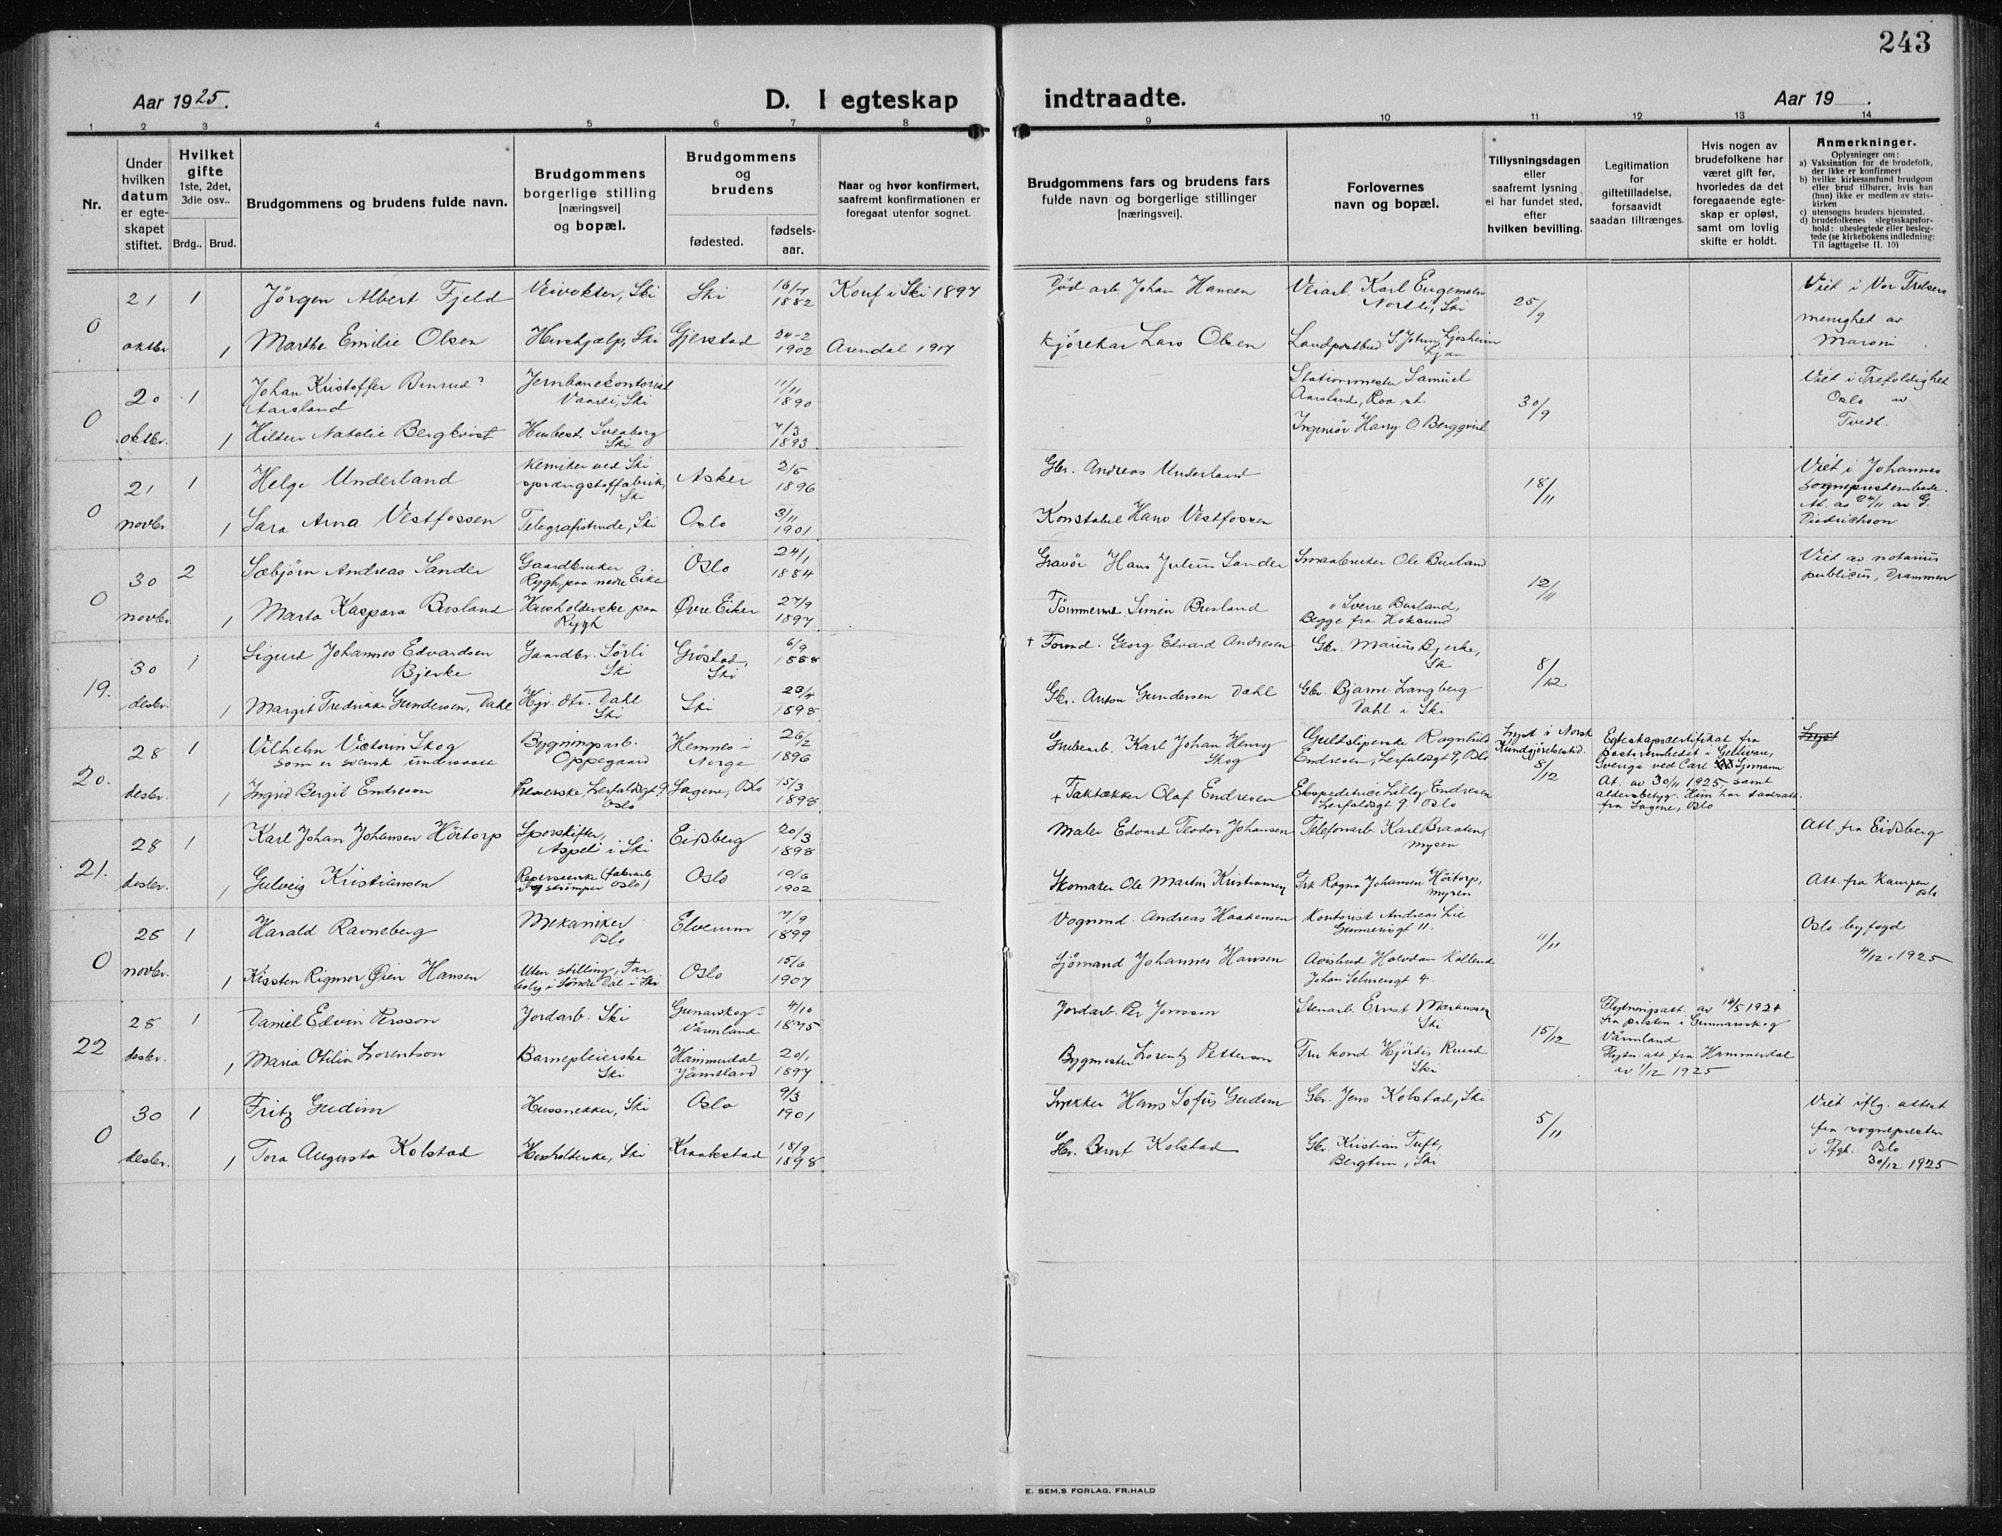 243
Aar 1925.
D. I egteskap
indtraadte.
Aar 19 .
1 2 3 4 5 6 7 8 9 10 11 12 13 14
Nr.
Under
hvilken
datum
er egte-
skapet
stiftet.
Hvilket
gifte
1ste, 2det,
3die osv..
Brdg.. Brud.
Brudgommens og brudens fulde navn.
Brudgommens
borgerlige stilling
[næringsvei]
og bopæl.
Brudgommens
og
brudens
fødested.
fødsels-
aar.
Naar og hvor konfirmert,
saafremt konfirmationen er
foregaat utenfor sognet.
Brudgommens fars og brudens fars
fulde navn og borgerlige stillinger
[næringsvei].
Forlovernes
navn og bopæl.
Tillysningsdagen
eller
saafremt lysning
ei har fundet sted,
efter
hvilken bevilling.
Legitimation
for
giftetilladelse,
forsaavidt
saadan tiltrænges.
Hvis nogen av
brudefolkene har
været gift før,
hvorledes da det
foregaaende egte-
skap er opløst,
samt om lovlig
skifte er holdt.
Anmerkninger.
Oplysninger om:
a) Vaksination for de brudefolk,
der ikke er konfirmert
b) hvilke kirkesamfund brudgom
eller brud tilhører, hvis han
(hun) ikke er medlem av stats-
kirken
c) utensogns bruders hjemsted.
d) brudefolkenes slegtsskapsfor-
hold: ubeslegtede eller besleg-
tede (se kirkebokens indledning:
Til iagttagelse II. 10)
0 21 1 Jörgen Albert Fjeld Veivokter, Ski Ski 16/7 1882 Konf i Ski 1897 Död arb. Johan Hansen Veiarb. Karl Eugensen Nordli, Ski 25/9 Viet i Vor Frelsers
oktbr 1 Marthe Emilie Olsen Hushjælp, Ski Gjerstad 24-2 1902 Arendal 1917 Kjörekar Lars Olsen Landpostbud menighet av
0 20 1 Johan Kristoffer Aarsland Jernbanekontorist Vaarli, Ski 11/11 1890 Stationsmester Samuel Aarsland, Roa st. 30/9 Viet i Trefoldighet Oslo av
oktbr. 1 Natalie Bergkvist Husbest. Svenborg Ski 7/3 1893 Ingeniör Harry O. Bergqvist Tvedt.
0 21 1 Helge Underland Kemiker ved Ski sprængstoffabrik, Ski Asker 2/5 1896 Gbr. Andreas Underland 18/11 Viet i Johannes
novbr 1 Sara Arna Vestfossen Telegrafistinde, Ski Oslo 3/11 1901 Konstabel Hans Vestfossen At. av 24/11 av G. Diedrichson
0 30 2 Sæbjörn Andreas Sander Gaardbruker Rygh paa nedre Eike Oslo 24/1 1884 Gravör Hans Julius Sander Smaabruker Ole Busland 12/11 Viet av notarius publicus, Drammen
novbr. 1 Marta Kaspara Busland Husholderske paa Rygh Øvre Eiker 27/9 1897 Tömmerm. Simen Busland " Sverre Busland, Begge fra Hoksund
19. 30 1 Sigurd Johannes Edvardsen Bjerke Gaardbr. Sörli Ski Gröstad, Ski 6/9 1888 + Formd. Georg Edvard Andresen Gbr. Marius Bjerke, Ski 8/12
desbr. 1 Margit Fredrikke Gundersen, Dahl Hjv. dtr. Dahl Ski Ski 23/4 1898 Gbr. Anton Gundersen Dahl Gbr. Bjarne Langberg Dahl i Ski
20. 28 1 Vilhelm Victorin Skog som er svensk undersaatt Bygningsarb. Oppegaard Hemnes i Norge 26/2 1896 Grubearb. Karl Johan Henry Skog Gultsliperske Ragnhild Endresen, Lerfaldsgt 9, Oslo Lyst i Norsk Kundgjörelsestid. 8/12 Egteskapscertifikat fra pastorsembedet i Gellivare, Sverige ved Carl Sjömann
desbr. 1 Ingrid Bergit Endresen Lerfaldsgt 9 Oslo Sagene, Oslo 15/3 1898 + Taktækker Olaf Endresen Ekspeditrice Lilly Endresen Lerfaldsgt 9 Oslo At. av 30/11 1925 samt aldersbetyg. Hun har daabsatt. fra Sagene, Oslo
21. 28 1 Karl Johan Johansen Höitorp Sporskifter, Aspeli i Ski Eidsberg 20/3 1898 Maler Edvard Teodor Johansen Telefonarb Karl Braaten, Mysen Att. fra Eidsberg
desbr. 1 Gulveig Kristiansen Oslo 10/6 1902 Skomaker Ole Martin Kristiansen Frk Ragna Johansen Höitorp, Mysen Att. fra Kampen Oslo
0 25 1 Harald Ravneberg Mekaniker Oslo Elverum 7/9 1899 Vognmd. Andreas Haakensen Kontorist Andreas Lie 11/11 Oslo byfogd
novbr. 1 Kirsten Rigmor Øien Hansen Uten stilling, Oslo 15/6 1907 Sjömand Johannes Hansen Avisbud Halvdan Johan Selmersgt 4. 4/12. 1925
22 28 1 Daniel Edvin Persson Jordarb. Ski Gunarskog Värmland 4/10 1875 Jordarb. Per Jonsson Stenarb. Ernst Markussen Ski 15/12 Flytningsatt. av 14/5 1924 fra presten i Gunnarsskog Värmland
desbr. 1 Maria Otilia Lorentson Barnepleierske Ski Hammerdal Jämtland 20/1 1897 Bygmester Lorentz Petterson Fru kond Hjördis Ruud Ski Flytn. att fra Hammerdal av 1/12 1925
0 30 1 Fritz Gudim Hussnekker, Ski Oslo 9/3 1901 Snekker Hans Sofus Gudim Gbr. Jens Kolstad, Ski 5/11 Viet iflg. attest fra sogneprester
desbr. 1 Tora Augusta Kolstad Husholderske, Ski Kraakstad 18/9 1898 Gbr. Bernt Kolstad Gbr. Kristian Tuft, Bergtun, Ski i Tfgh. Oslo 30/12 1925
E. SEM,S FORLAG, FR.HALD